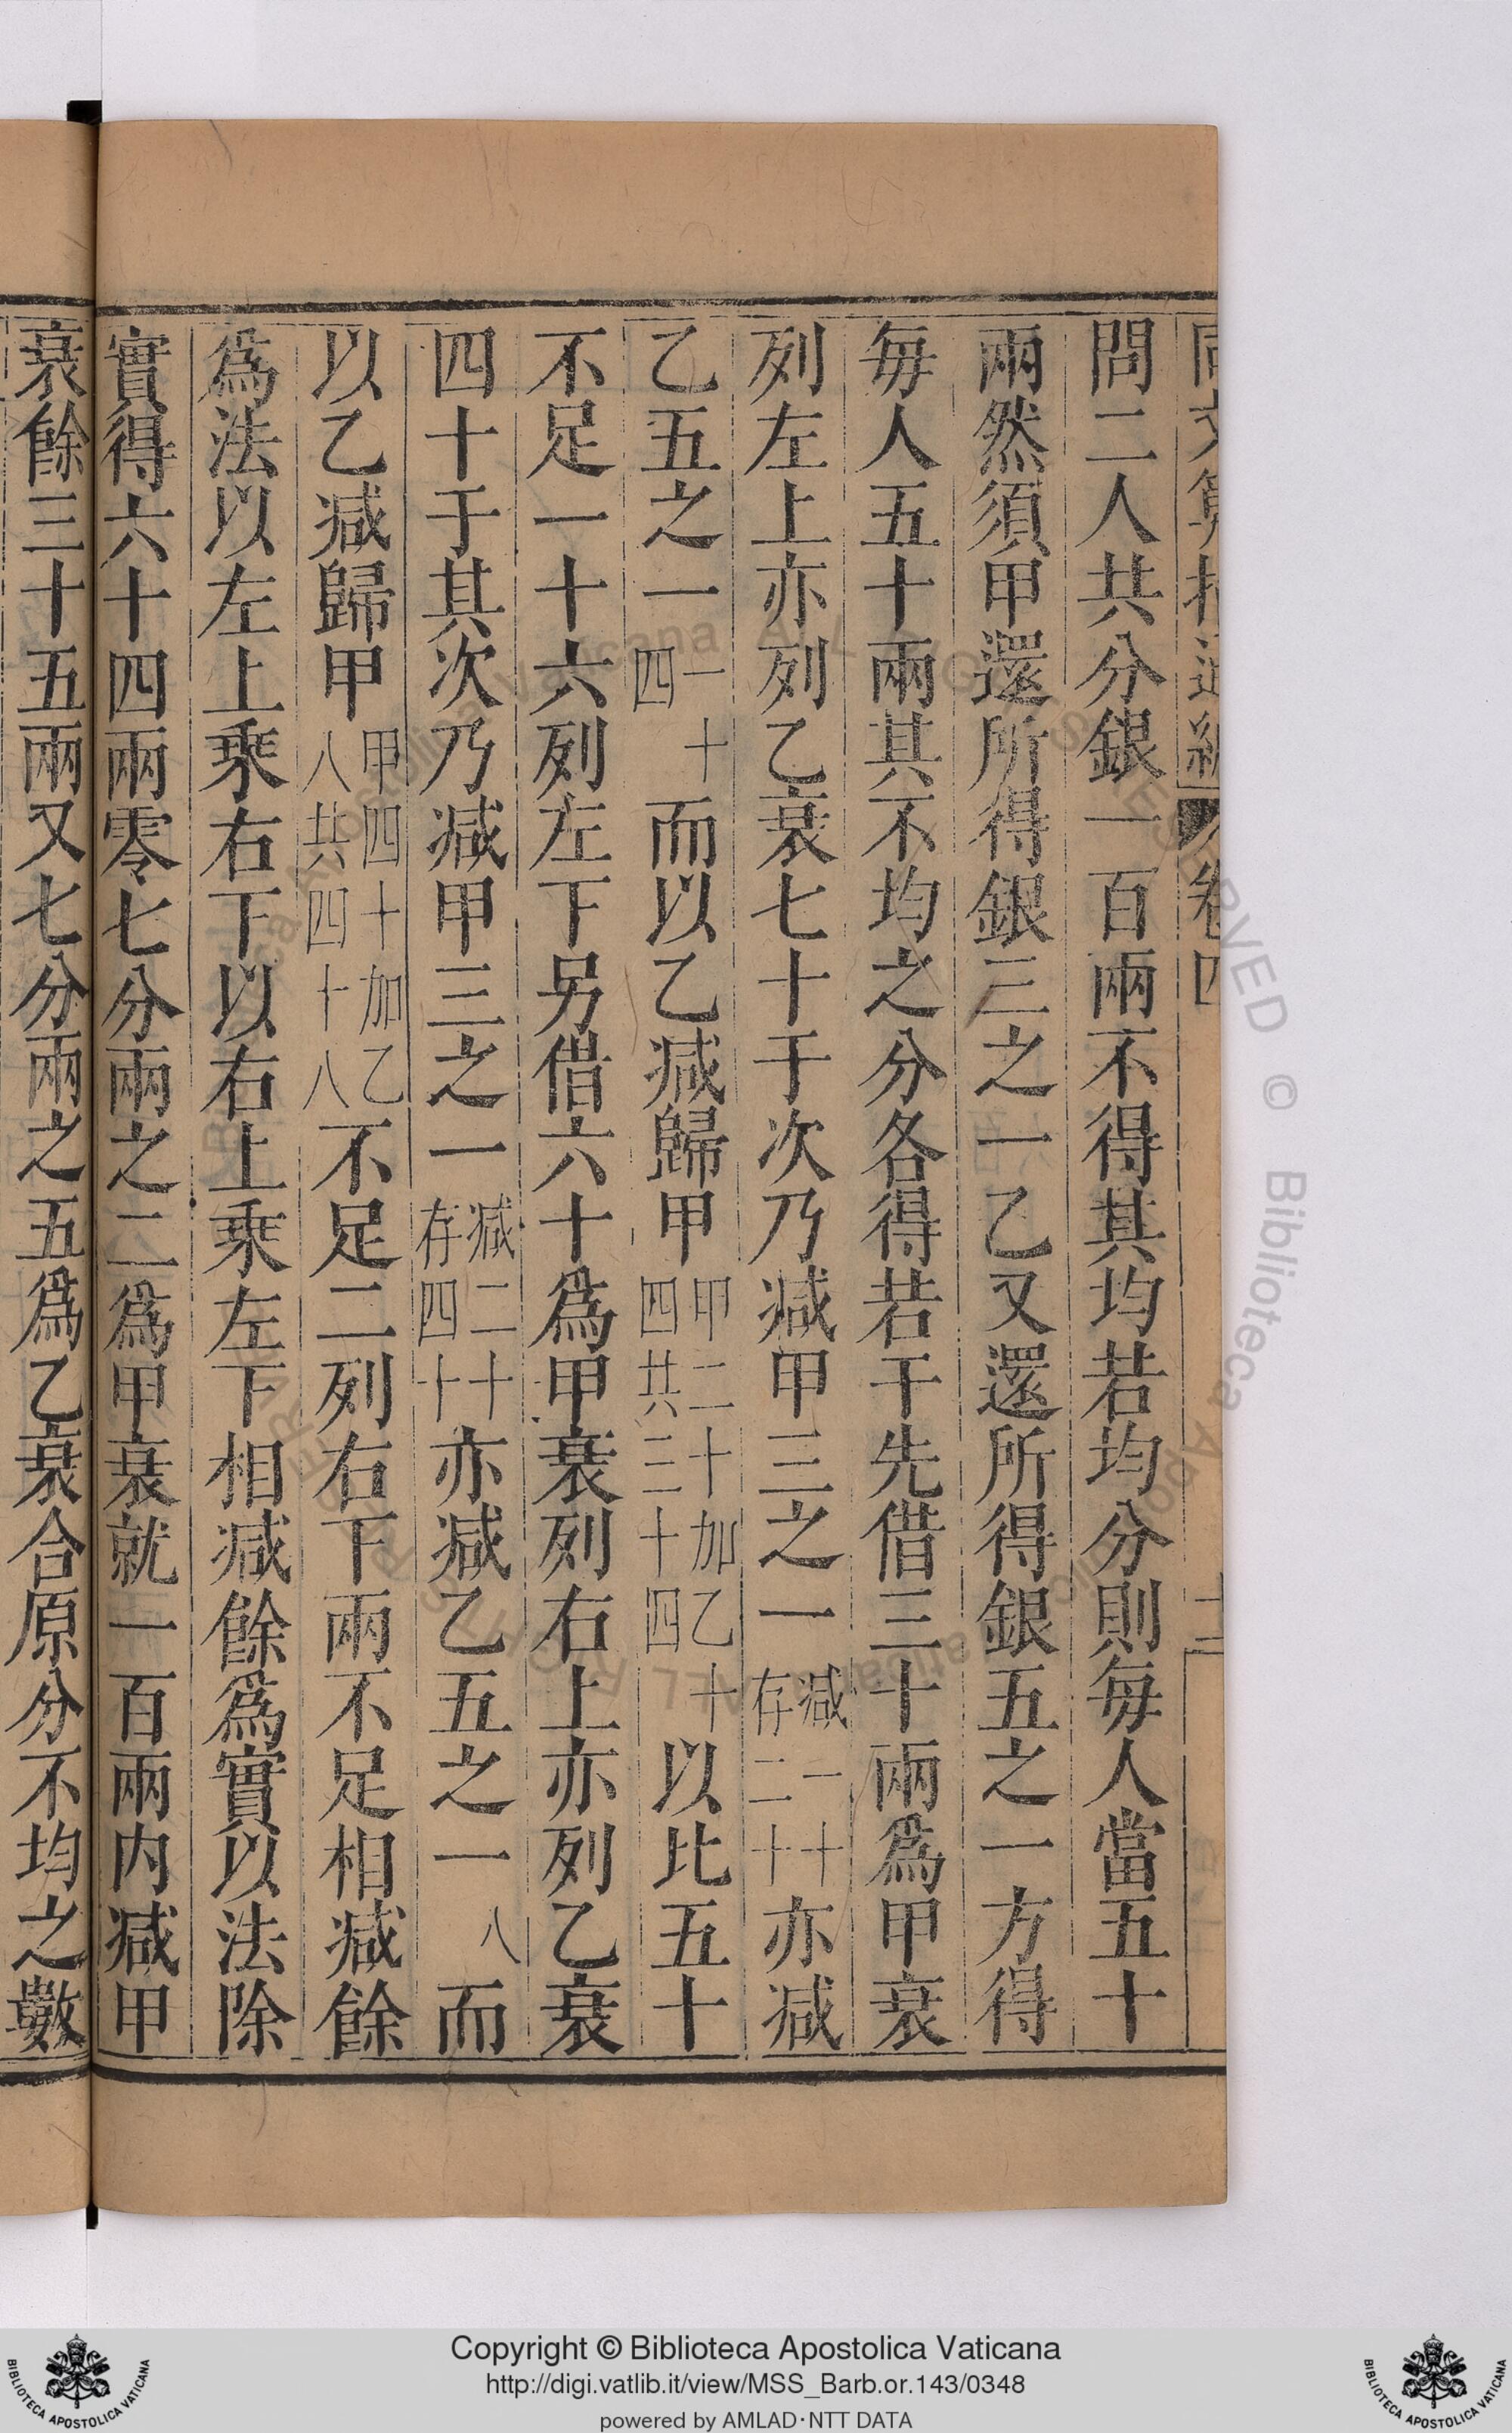 同文算指通編 卷四 十二
問二人共分銀一百兩不得其均若均分則每人當五十
兩然須甲還所得銀三之一乙又還所得銀五之一方得
每人五十兩其不均之分各得若干先借三十兩爲甲衰
列左上亦列乙衰七十于次乃减甲三之一减一十存二十亦减
乙五之一一十四而以乙减歸甲甲二十加乙十四共三十四以比五十
不足一十六列左下另借六十爲甲衰列右上亦列乙衰
四十于其次乃减甲三之一减二十存四十亦减乙五之一八而
以乙减歸甲甲四十加乙八共四十八不足二列右下兩不足相减餘
爲法以左上乘右下以右上乘左下相减餘爲實以法除
實得六十四兩零七分兩之二爲甲衰就一百兩内减甲
衰餘三十五兩又七分兩之五爲乙衰合原分不均之數
Copyright © Biblioteca Apostolica Vaticana
http://digi.vatlib.it/view/MSS_Barb.or.143/0348
powered by AMLAD·NTT DATA
BIBLIOTECA APOSTOLICA VATICANA
BIBLIOTECA APOSTOLICA VATICANA